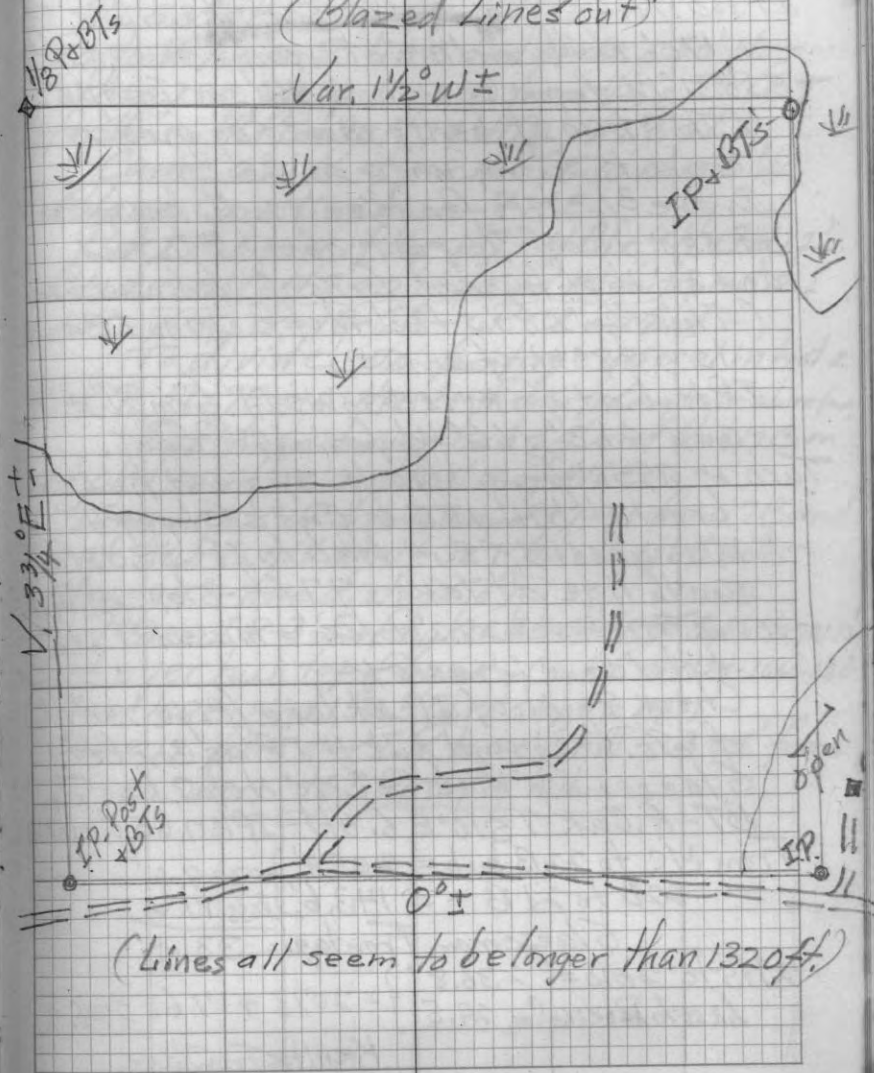 (Blazed Lines out)
1/8 P & BTs
Var. 1 1/2° W ±
IP & BT's
V. 3 3/4° E ±
open
IP-Post
& BTs
I.P.
0° ±
(Lines all seem to be longer than 1320 ft.)